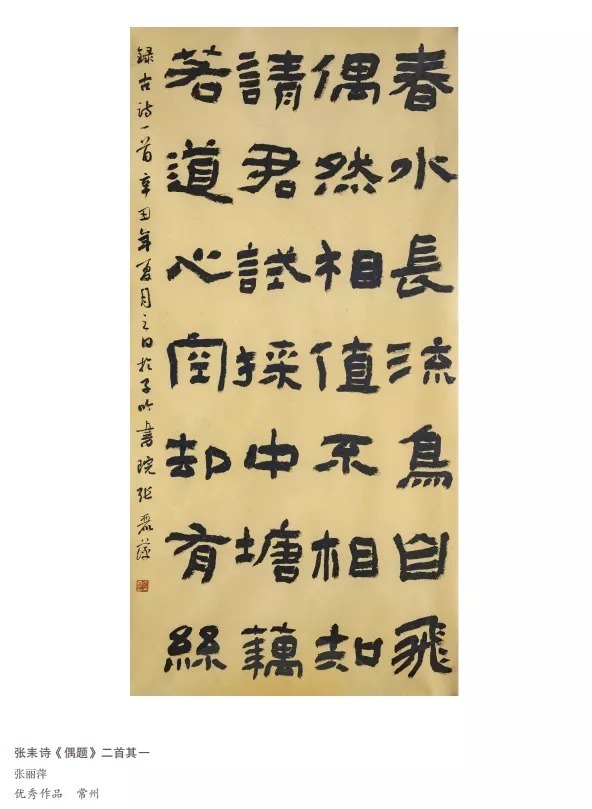 春水長流鳥自飛
偶然相值不相知
請君試採中塘藕
若道心空却有絲
録古诗一首辛丑年夏月之日於子吟書院张丽萍
张耒诗《偶题》二首其一
张丽萍
优秀作品 常州